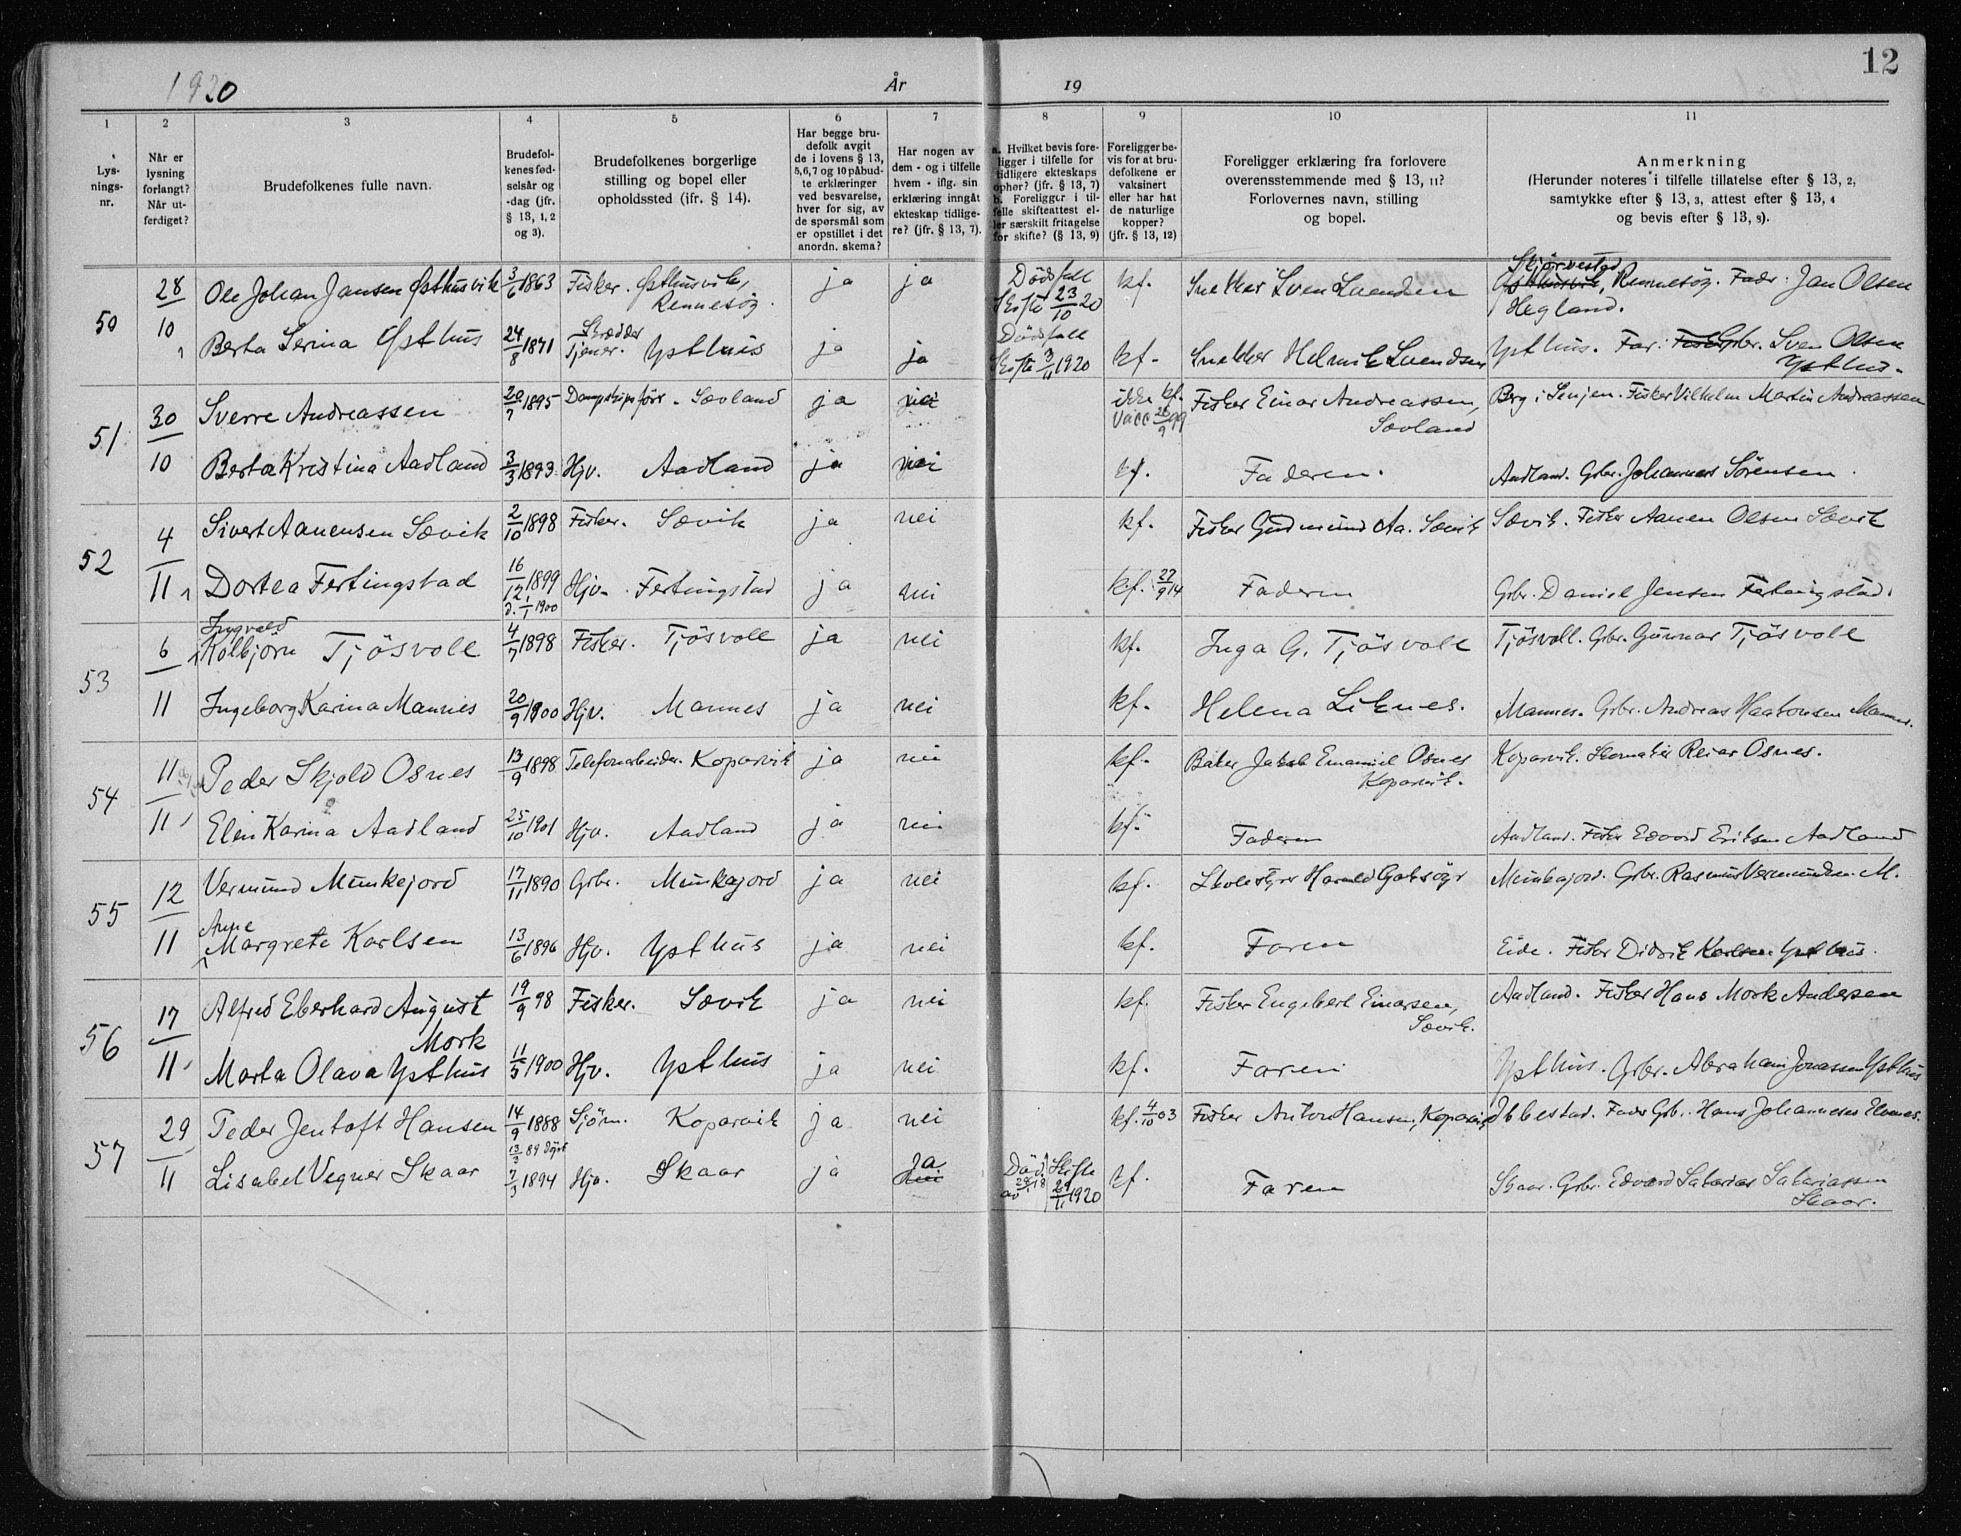 12
1920 År 19
1 2 3 4 5 6 7 8 9 10 11
Lys-
nings-
nr.
Når er
lysning
forlangt?
Når ut-
ferdiget?
Brudefolkenes fulle navn.
Brudefol-
kenes fød-
selsår og
-dag (jfr.
§ 13, 1, 2
og 3).
Brudefolkenes borgerlige
stilling og bopel eller
opholdssted (jfr. § 14).
Har begge bru-
defolk avgit
de i lovens § 13,
5, 6, 7 og 10 påbud-
te erklæringer
ved besvarelse,
hver for sig, av
de spørsmål som
er opstillet i det
anordn. skema?
Har nogen av
dem - og i tilfelle
hvem - iflg. sin
erklæring inngåt
ekteskap tidlige-
re? (jfr. § 13, 7).
a. Hvilket bevis fore-
ligger i tilfelle for
tidligere ekteskaps
ophør? (jfr. § 13, 7)
b. Foreligger i til-
felle skifteattest el-
ler særskilt fritagelse
for skifte? (§ 13, 9)
Foreligger be-
vis for at bru-
defolkene er
vaksinert
eller har hat
de naturlige
kopper?
(jfr. § 13, 12)
Foreligger erklæring fra forlovere
overensstemmende med § 13, 11?
Forlovernes navn, stilling
og bopel.
Anmerkning
(Herunder noteres i tilfelle tillatelse efter § 13, 2,
samtykke efter § 13, 3, attest efter § 13, 4
og bevis efter § 13, 9).
50 28/10 Ole Johan Jansen Østhusvik 3/6 1863 Fisker. Østhusvik, Rennesöy. ja ja Dødsfall Skifte 23/10 20 kf. Snekker Sven Svendsen Østhusvik, Rennesöy. Fader: Jan Olsen
Hegland.
Berta Serina Østhus 24/8 1871 Skrædder Tjener. Ysthus ja ja Dødsfall Skifte 3/11 1920 kf. Snekker Helmik Svendsen Ysthus. Far: Gbr. Sven Olsen
Ysthus.
51 30/10 Sverre Andreassen 20/7 1895 Dampskipsförer. Sævland ja nei ikke kf. Vacc 26/9 99 Fisker Einar Andreassen,
Sævland Berg i Senjen. Fisker Vilhelm Martin Andreassen
Berta Kristina Aadland 3/3 1893 Hjv. Aadland ja nei kf. Faderen. Aadland. Grbr. Johannes Sörensen.
52 4/11 Sivert Aanensen Sævik 2/10 1898 Fisker. Sævik ja nei kf. Fisker Gudmund Aa. Sævik Sævik. Fisker Aanen Olsen Sævik
Dortea Fertingstad 16/12 1899 d. 1/1 1900 Hjv. Fertingstad ja nei kf. 27/9 14 Faderen Grbr. Daniel Jensen Fertingstad.
53 6/11 Ingvald
Kolbjörn Tjösvoll 4/7 1898 Fisker. Tjösvoll ja nei kf. Inga G. Tjösvoll Tjösvoll. Grbr. Gunnar Tjösvoll
Ingeborg Karina Mannes 20/9 1900 Hjv. Mannes ja nei kf. Helena Liknes. Mannes. Grbr. Andreas Haakonsen Mannes.
54 11/11 Peder Skjold Osnes 13/9 1898 Telefonarbeider. Koparvik ja nei kf. Baker Jakob Emanuel Osnes
Koparvik. Koparvik. Skomaker Reiar Osnes.
Elen Karina Aadland 25/10 1901 Hjv. Aadland ja nei kf. Faderen Aadland. Fisker Edvard Eriksen Aadland
55 12/11 Vermund Munkejord 17/11 1890 Grbr. Munkejord ja nei kf. Skolestyrer Harald Munkejord. Grbr. Rasmus Vermundsen M.
Anne
Margrete Karlsen 13/6 1896 Hjv. Ysthus ja nei kf. Faren Eide. Fisker Didrik Karlsen Ysthus.
56 17/11 Alfred Eberhard August
Mork 19/9 98 Fisker. Sævik ja nei kf. Fisker Engebert Einarsen,
Sævik. Aadland. Fisker Hans Mork Andersen
Marta Olava Ysthus 11/5 1900 Hjv. Ysthus ja nei kf. Faren Ysthus. Grbr. Abraham Jonassen Ysthus
57 29/11 Peder Jentoft Hansen 14/9 1888 13/3 89 döpt Sjöm. Koparvik ja nei kf. 4/10 03 Fisker Anton Hansen, Koparvik Ibbestad. Fader Grbr. Hans Johannesen
Lisabet Vegner Skaar 7/3 1894 Hjv. Skaar ja ja nei Död av 18 Skifte 29/11 1920 kf. Faren Skaar. Grbr. Edvard Sakarias Sakariassen
Skaar.